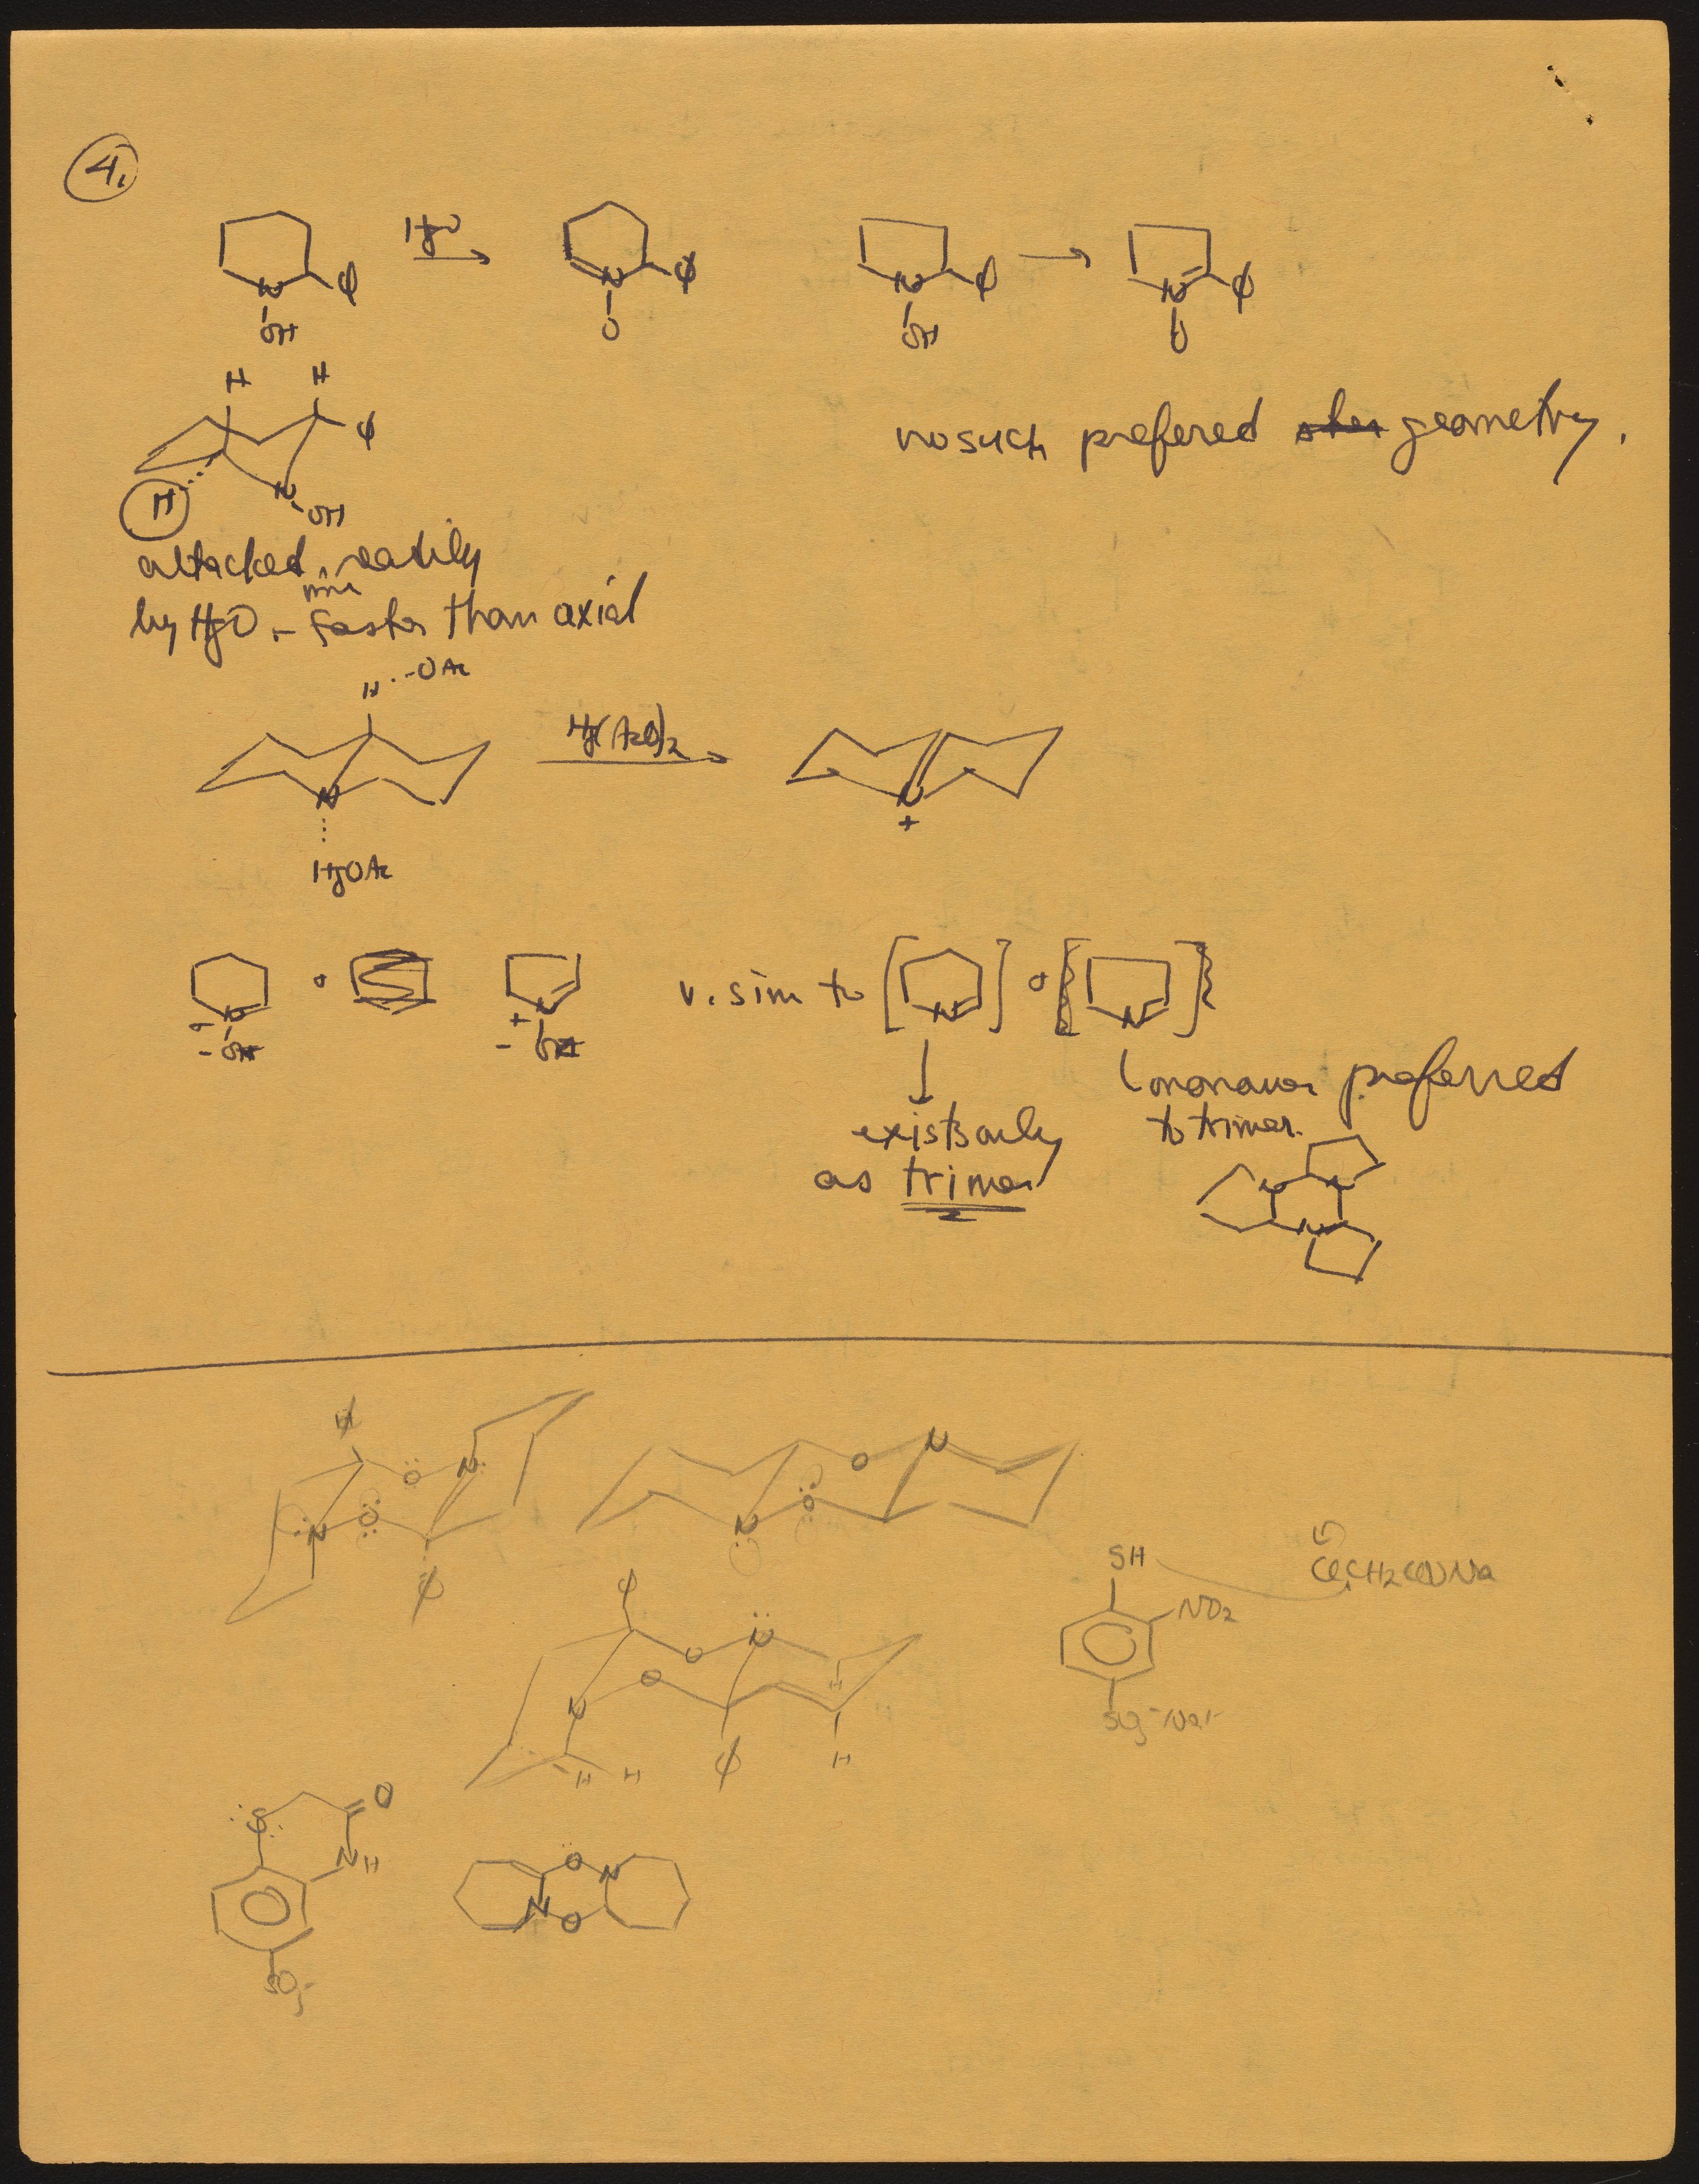 4.
HgO
N
Φ
OH
N
Φ
O
N
Φ
OH
N
Φ
O
H H
Φ
H
N
OH
no such prefered geometry.
attacked readily
by HgO - faster than axial
H ··· OAc
N
HgOAc
Hg(AcO)2
N
+
N
+
- OH
N
+
- OH
v. sim to [ N ] o { [ N ] }
exists only
as trimer
monomer preferred
to trimer.
N
N
N
H
O
N
N
O
Φ
O
N
O
N
Φ
O
N
O
N
H
H H
Φ
H
SH
NO2
SO3-Na+
ClCH2CONa
S
O
NH
SO3-
O
N
N
O